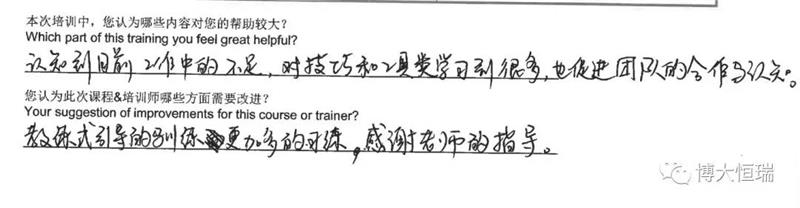 本次培训中，您认为哪些内容对您的帮助较大？
Which part of this training you feel great helpful?
认知到目前工作中的不足，对技巧和工具类学习到很多，也促进团队的合作与认知。
您认为此次课程&培训师哪些方面需要改进？
Your suggestion of improvements for this course or trainer?
教练式引导的训练更加多的对练，感谢老师的指导。
博大恒瑞